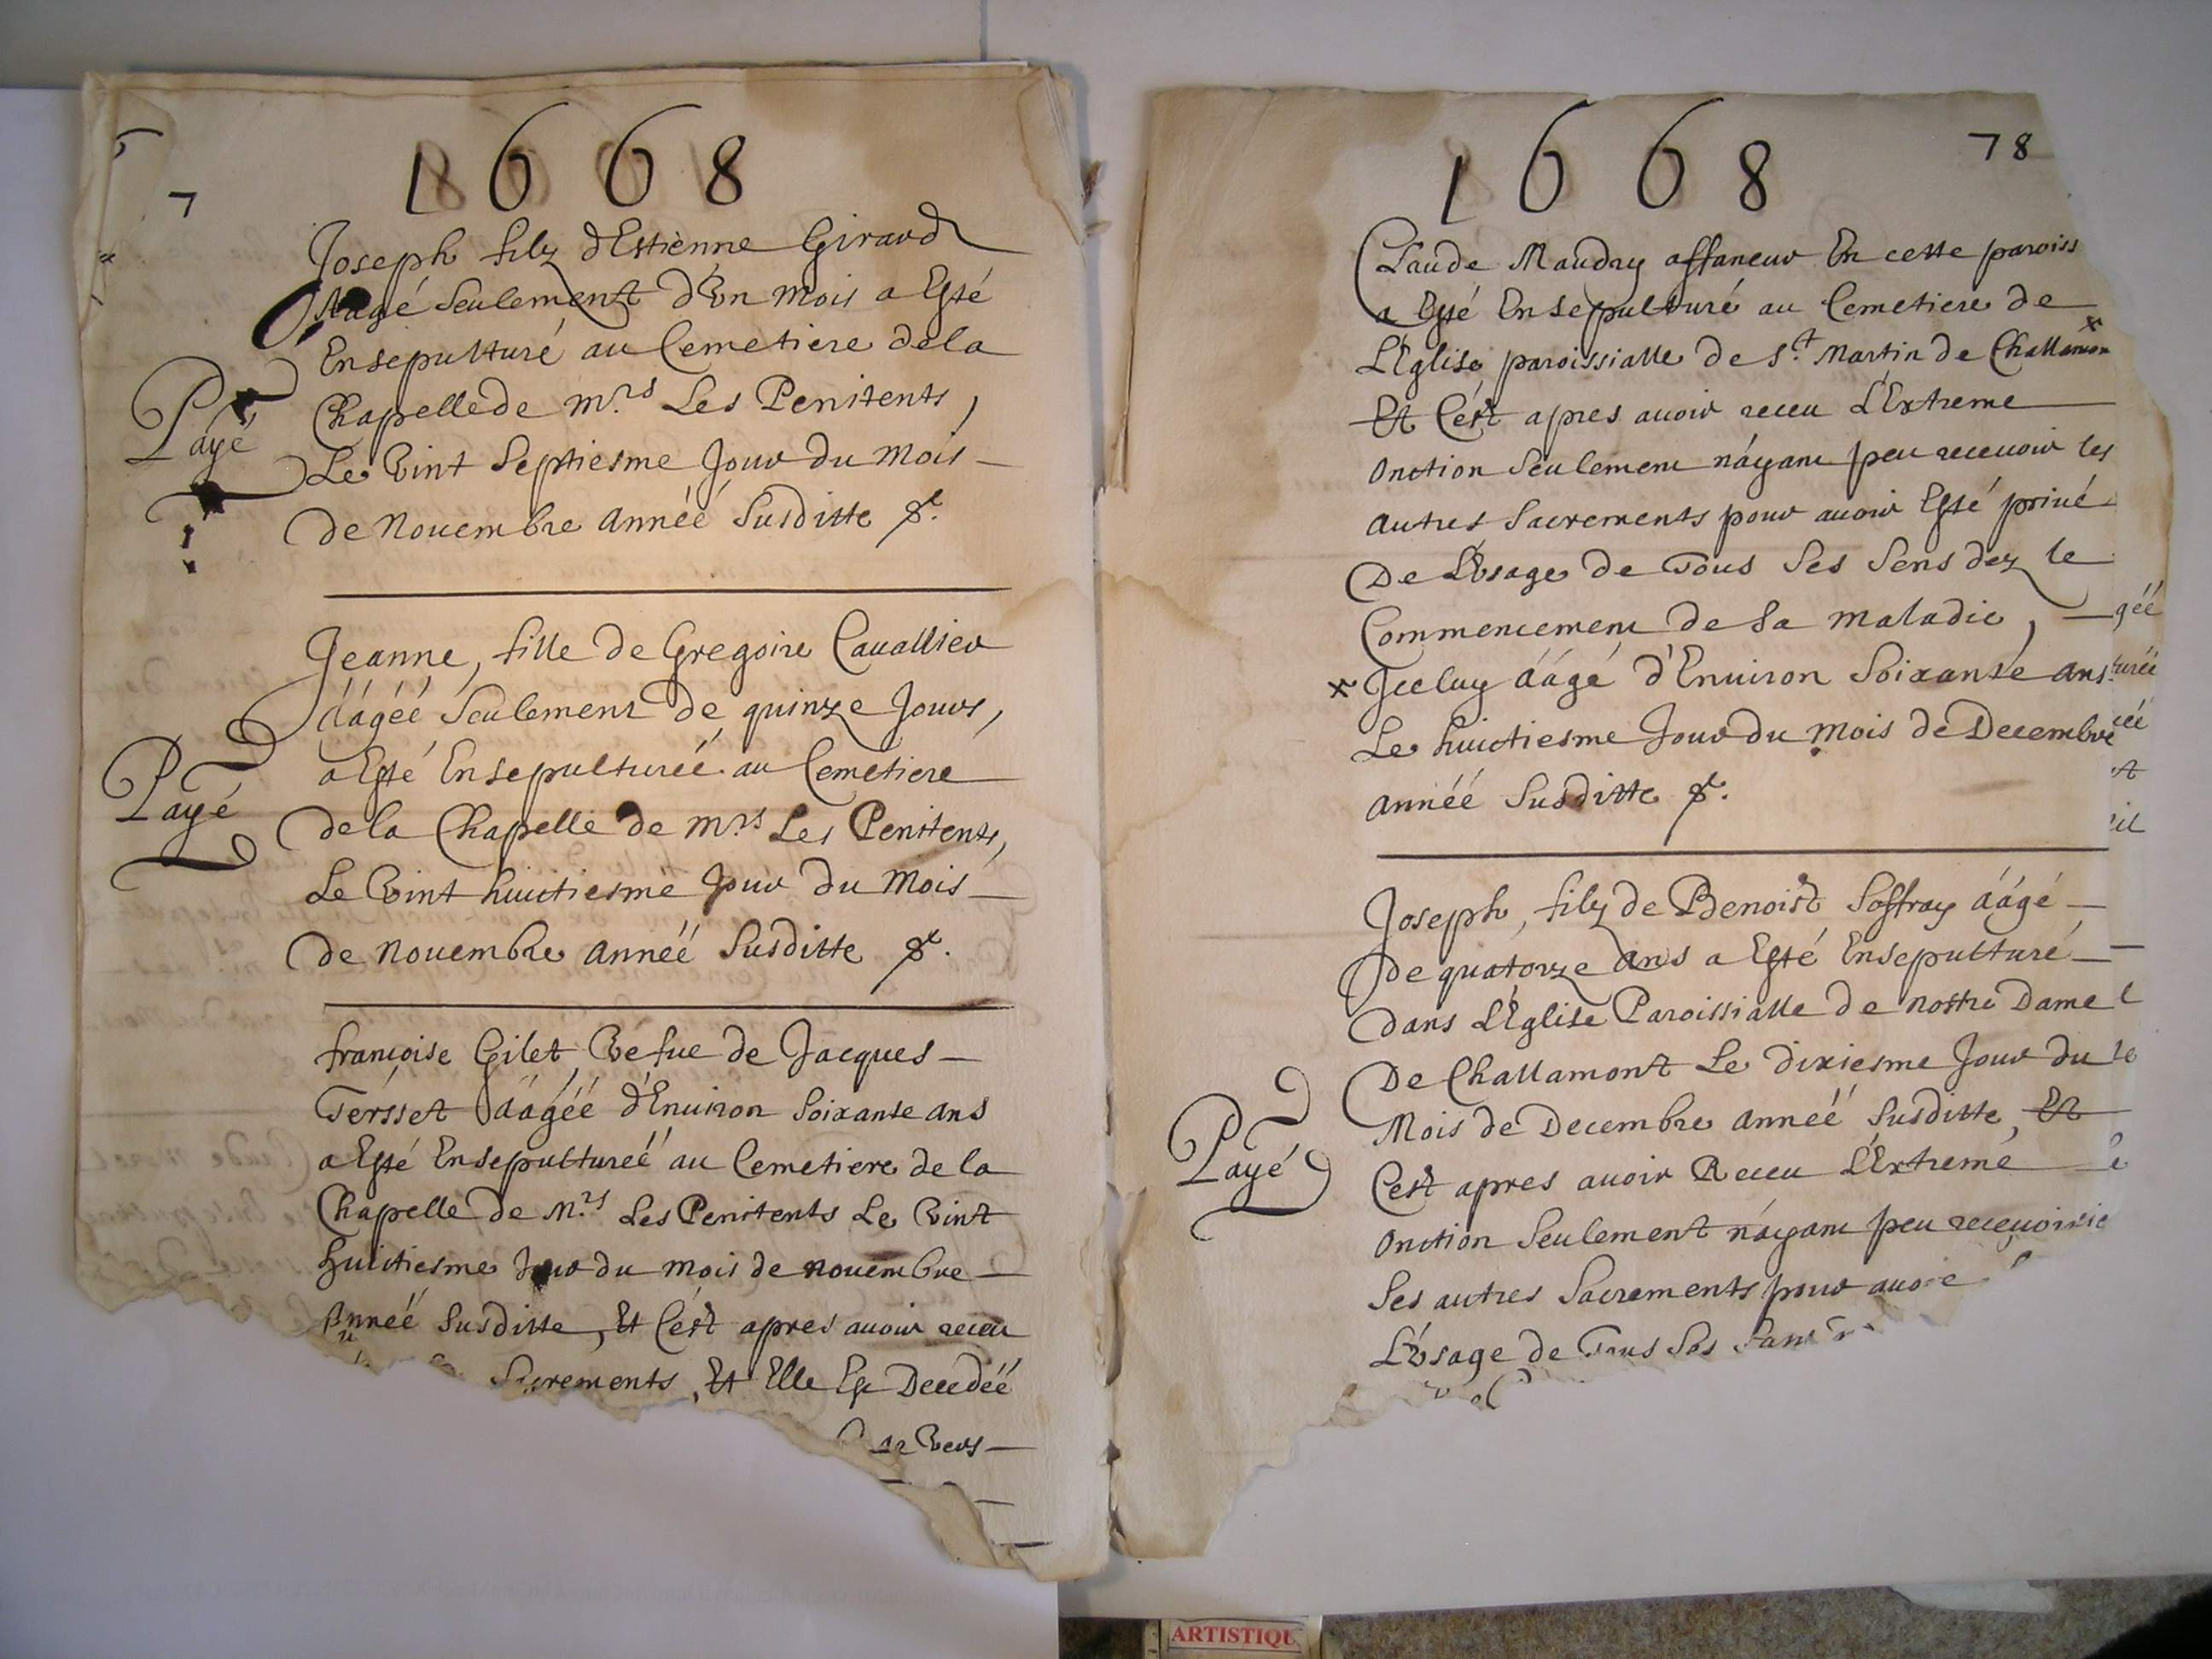 1668
7
Joseph filz d'Estienne Girard
Aagé Seulement d'Vn mois a Esté
Ensepulturé au Cemetiere dela
Chapelle de mrs Les Penitents,
Payé
Le Vint Septiesme Jour du mois
de Nouembre Annéé Susditte &.
Jeanne, fille de Gregoire Cauallier
áágéé Seulement de quinze Jours,
a Esté Ensepulturéé au Cemetiere
Payé
dela Chapelle de mrs Les Penitents,
Le Vint huictiesme Jour du Mois
de Nouembre Annéé Susditte &.
françoise Gilet, Vefue de Jacques
Tersset áágéé d'Enuiron Soixante ans
a Esté Ensepulturéé au Cemetiere de la
Chapelle de Mrs Les Penitents Le Vint
huictiesme Jour du mois de Nouembre
Annéé Susditte, Et C'ést apres auoir receu
Sacrements, Et Elle Est Decedéé
Vers
1668
78
Claude Maudry affaneur En cette paroiss
a Esté Ensepulturé au Cemetiere de
L'Eglise paroissialle de St Martin de Challamon
Et C'ést apres auoir receu L'Extreme
Onction Seulement n'áyant peu receuoir les
Autres Sacrements pour auoir Esté priué
De L'Vsage de Tous Ses Sens dez le
Commencement de Sa maladie,
géé
x Jceluy áágé d'Enuiron Soixante ans
turéé
Le huictiesme Jour du Mois de Decembre
Annéé Susditte &.
Joseph, filz de Benoist Soffray áágé
de quatorze Ans a Esté Ensepulturé
dans L'Eglise Paroissialle de Nostre Dame
De Challamont Le dixiesme Jour du
Mois de Decembre Annéé Susditte, Et
C'est apres auoir Receu L'Extreme
Payé
Onction Seulement n'áyant peu receuoir
Ses autres Sacrements pour
L'Vsage de Tous Ses Sens
ARTISTIQU